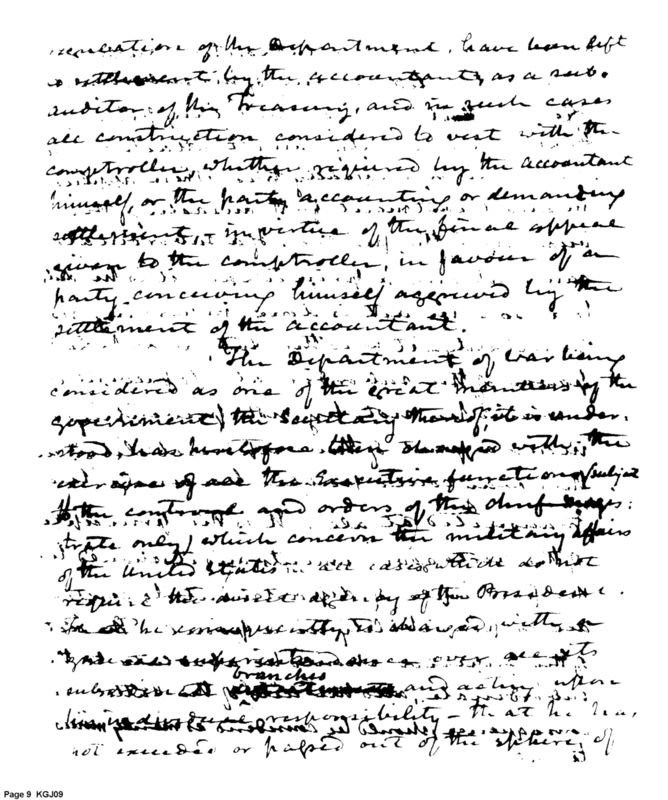 of the Department, have been left
settlement by the accountant, as a sub.
auditor of the Treasury, and in such cases
all construction considered to vest with the
comptroller, whether required by the accountant
himself, or the party accounting or demanding
settlement, in virtue of the final appeal
given to the comptroller, in favour of a
party conceiving himself aggrieved by the
settlement of the accountant.
The Department of War being
considered as one of the great of the
government, the Secretary thereof, it is under-
stood, has heretofore been charged with, the
exercise of all the Executive functions (subject
to the controul and orders of the chief magis:
trate only) which concern the military affairs
of the United States in all cases which do not
require the direct agency of the President.
he consequently, is charged, with a
superintendence over all its
branches
and acting upon
his responsibility - that he has,
not exceeded or passed out of the sphere, of
Page 9 KGJ09